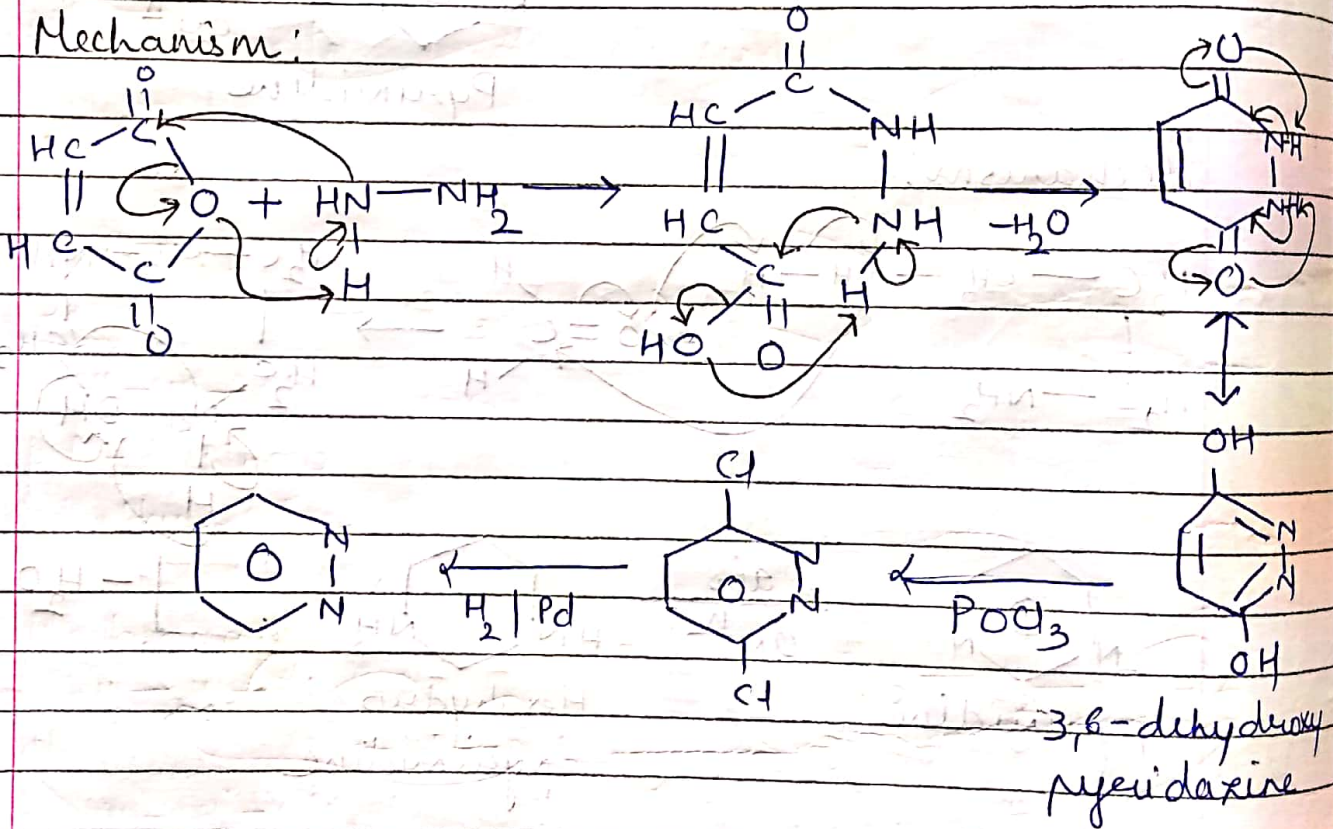 Mechanism:
O
C
HC
HC
C
O
O
+
HN—NH2
H
O
C
HC
NH
HC
NH
C
H
HO
O
-H2O
O
NH
NH
O
OH
N
N
OH
3,6-dihydroxy
pyridazine
POCl3
Cl
N
N
Cl
H2/Pd
N
N